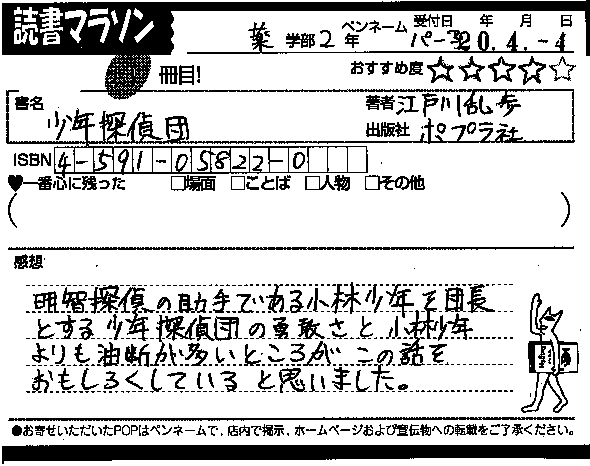 読書マラソン
ペンネーム 受付日 年 月 日
薬 学部 2 年 20.4.-4
冊目!
おすすめ度☆☆☆☆☆
書名 少年探偵団
著者 江戸川乱歩
出版社 ポプラ社
ISBN 4-591-05822-0
♥一番心に残った □場面 □ことば □人物 □その他
( )
感想
明智探偵の助手である小林少年を団長
とする少年探偵団の勇敢さと小林少年
よりも油断が多いところが この話を
おもしろくしていると思いました。
●お寄せいただいたPOPはペンネームで、店内で掲示、ホームページおよび宣伝物への転載をご了承ください。